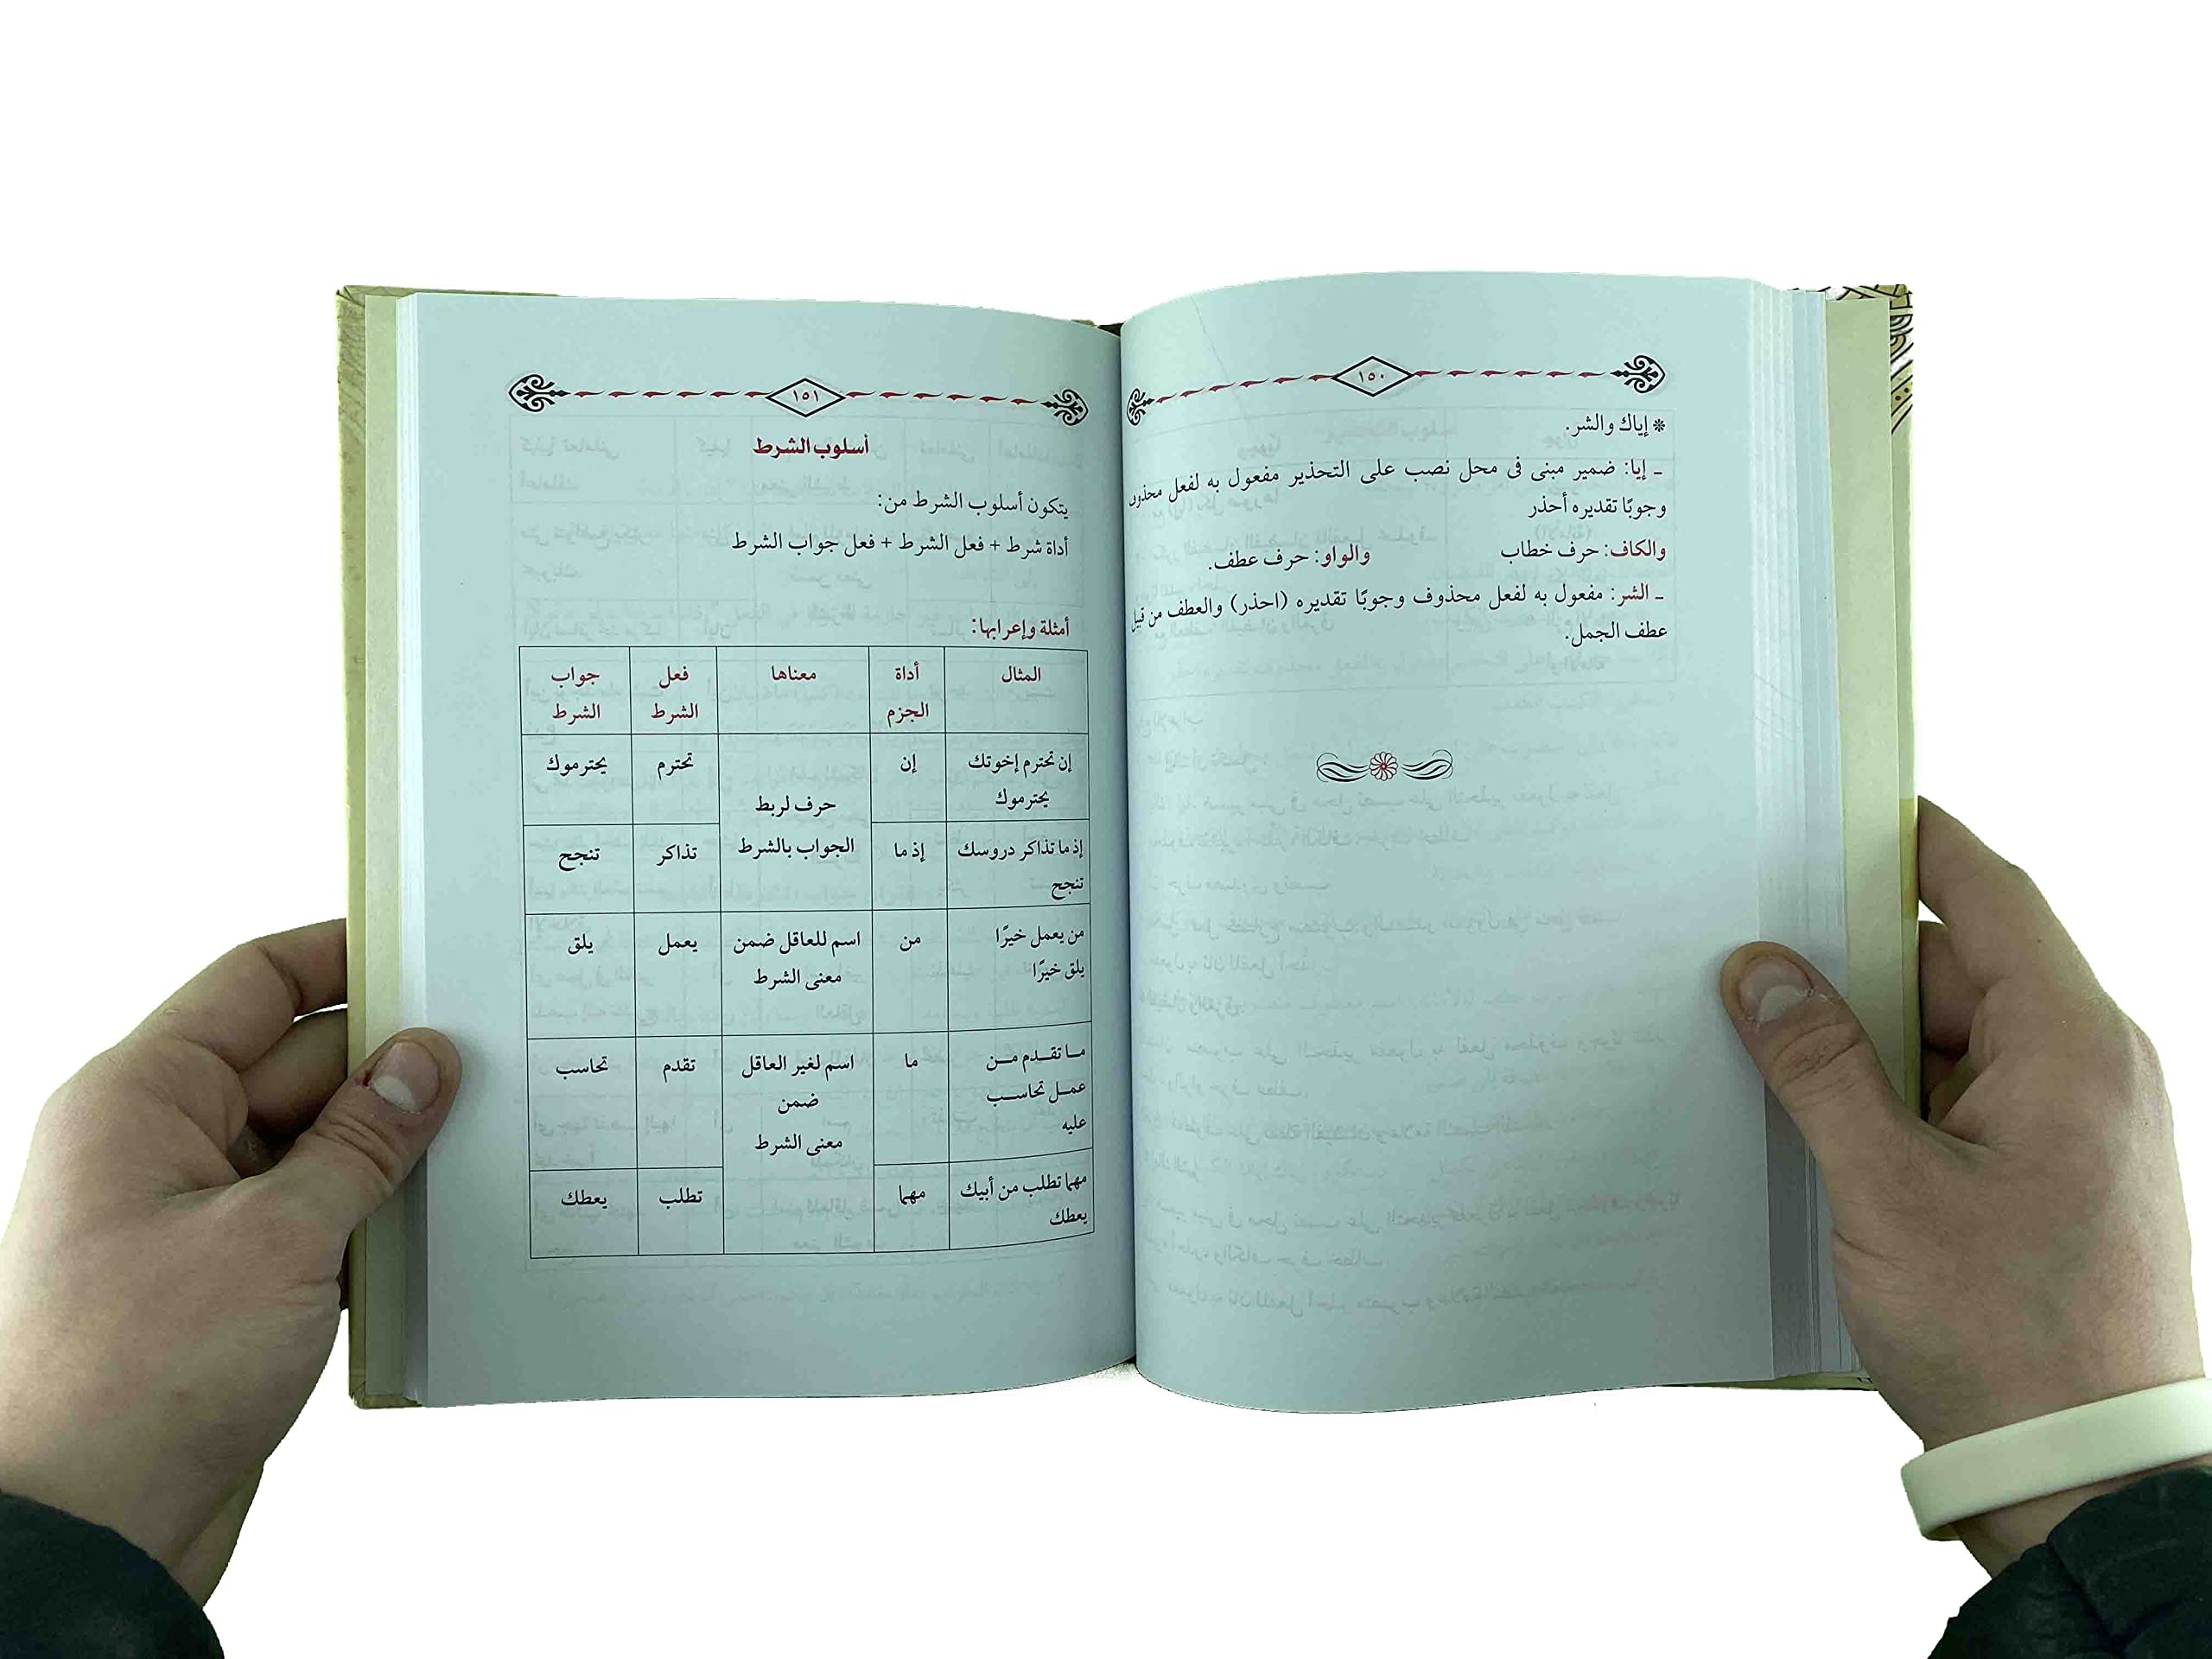 ١٥٠
* إياك والشر.
ـ إيا: ضمير مبنى فى محل نصب على التحذير مفعول به لفعل محذوف
وجوبًا تقديره أحذر
والكاف: حرف خطاب والواو: حرف عطف.
ـ الشر: مفعول به لفعل محذوف وجوبًا تقديره (احذر) والعطف من قبل
عطف الجمل.
١٥١
أسلوب الشرط
يتكون أسلوب الشرط من:
أداة شرط + فعل الشرط + فعل جواب الشرط
أمثلة وإعرابها:
المثال أداة معناها فعل جواب
الجزم الشرط الشرط
إن تحترم إخوتك إن تحترم يحترموك
يحترموك حرف لربط
إذ ما تذاكر دروسك إذ ما الجواب بالشرط تذاكر تنجح
تنجح
من يعمل خيرًا من اسم للعاقل ضمن يعمل يلق
يلق خيرًا معنى الشرط
مـا تقـدم مـن ما اسم لغير العاقل تقدم تحاسب
عمـل تحاسـب ضمن
عليه معنى الشرط
مهما تطلب من أبيك مهما تطلب يعطك
يعطك